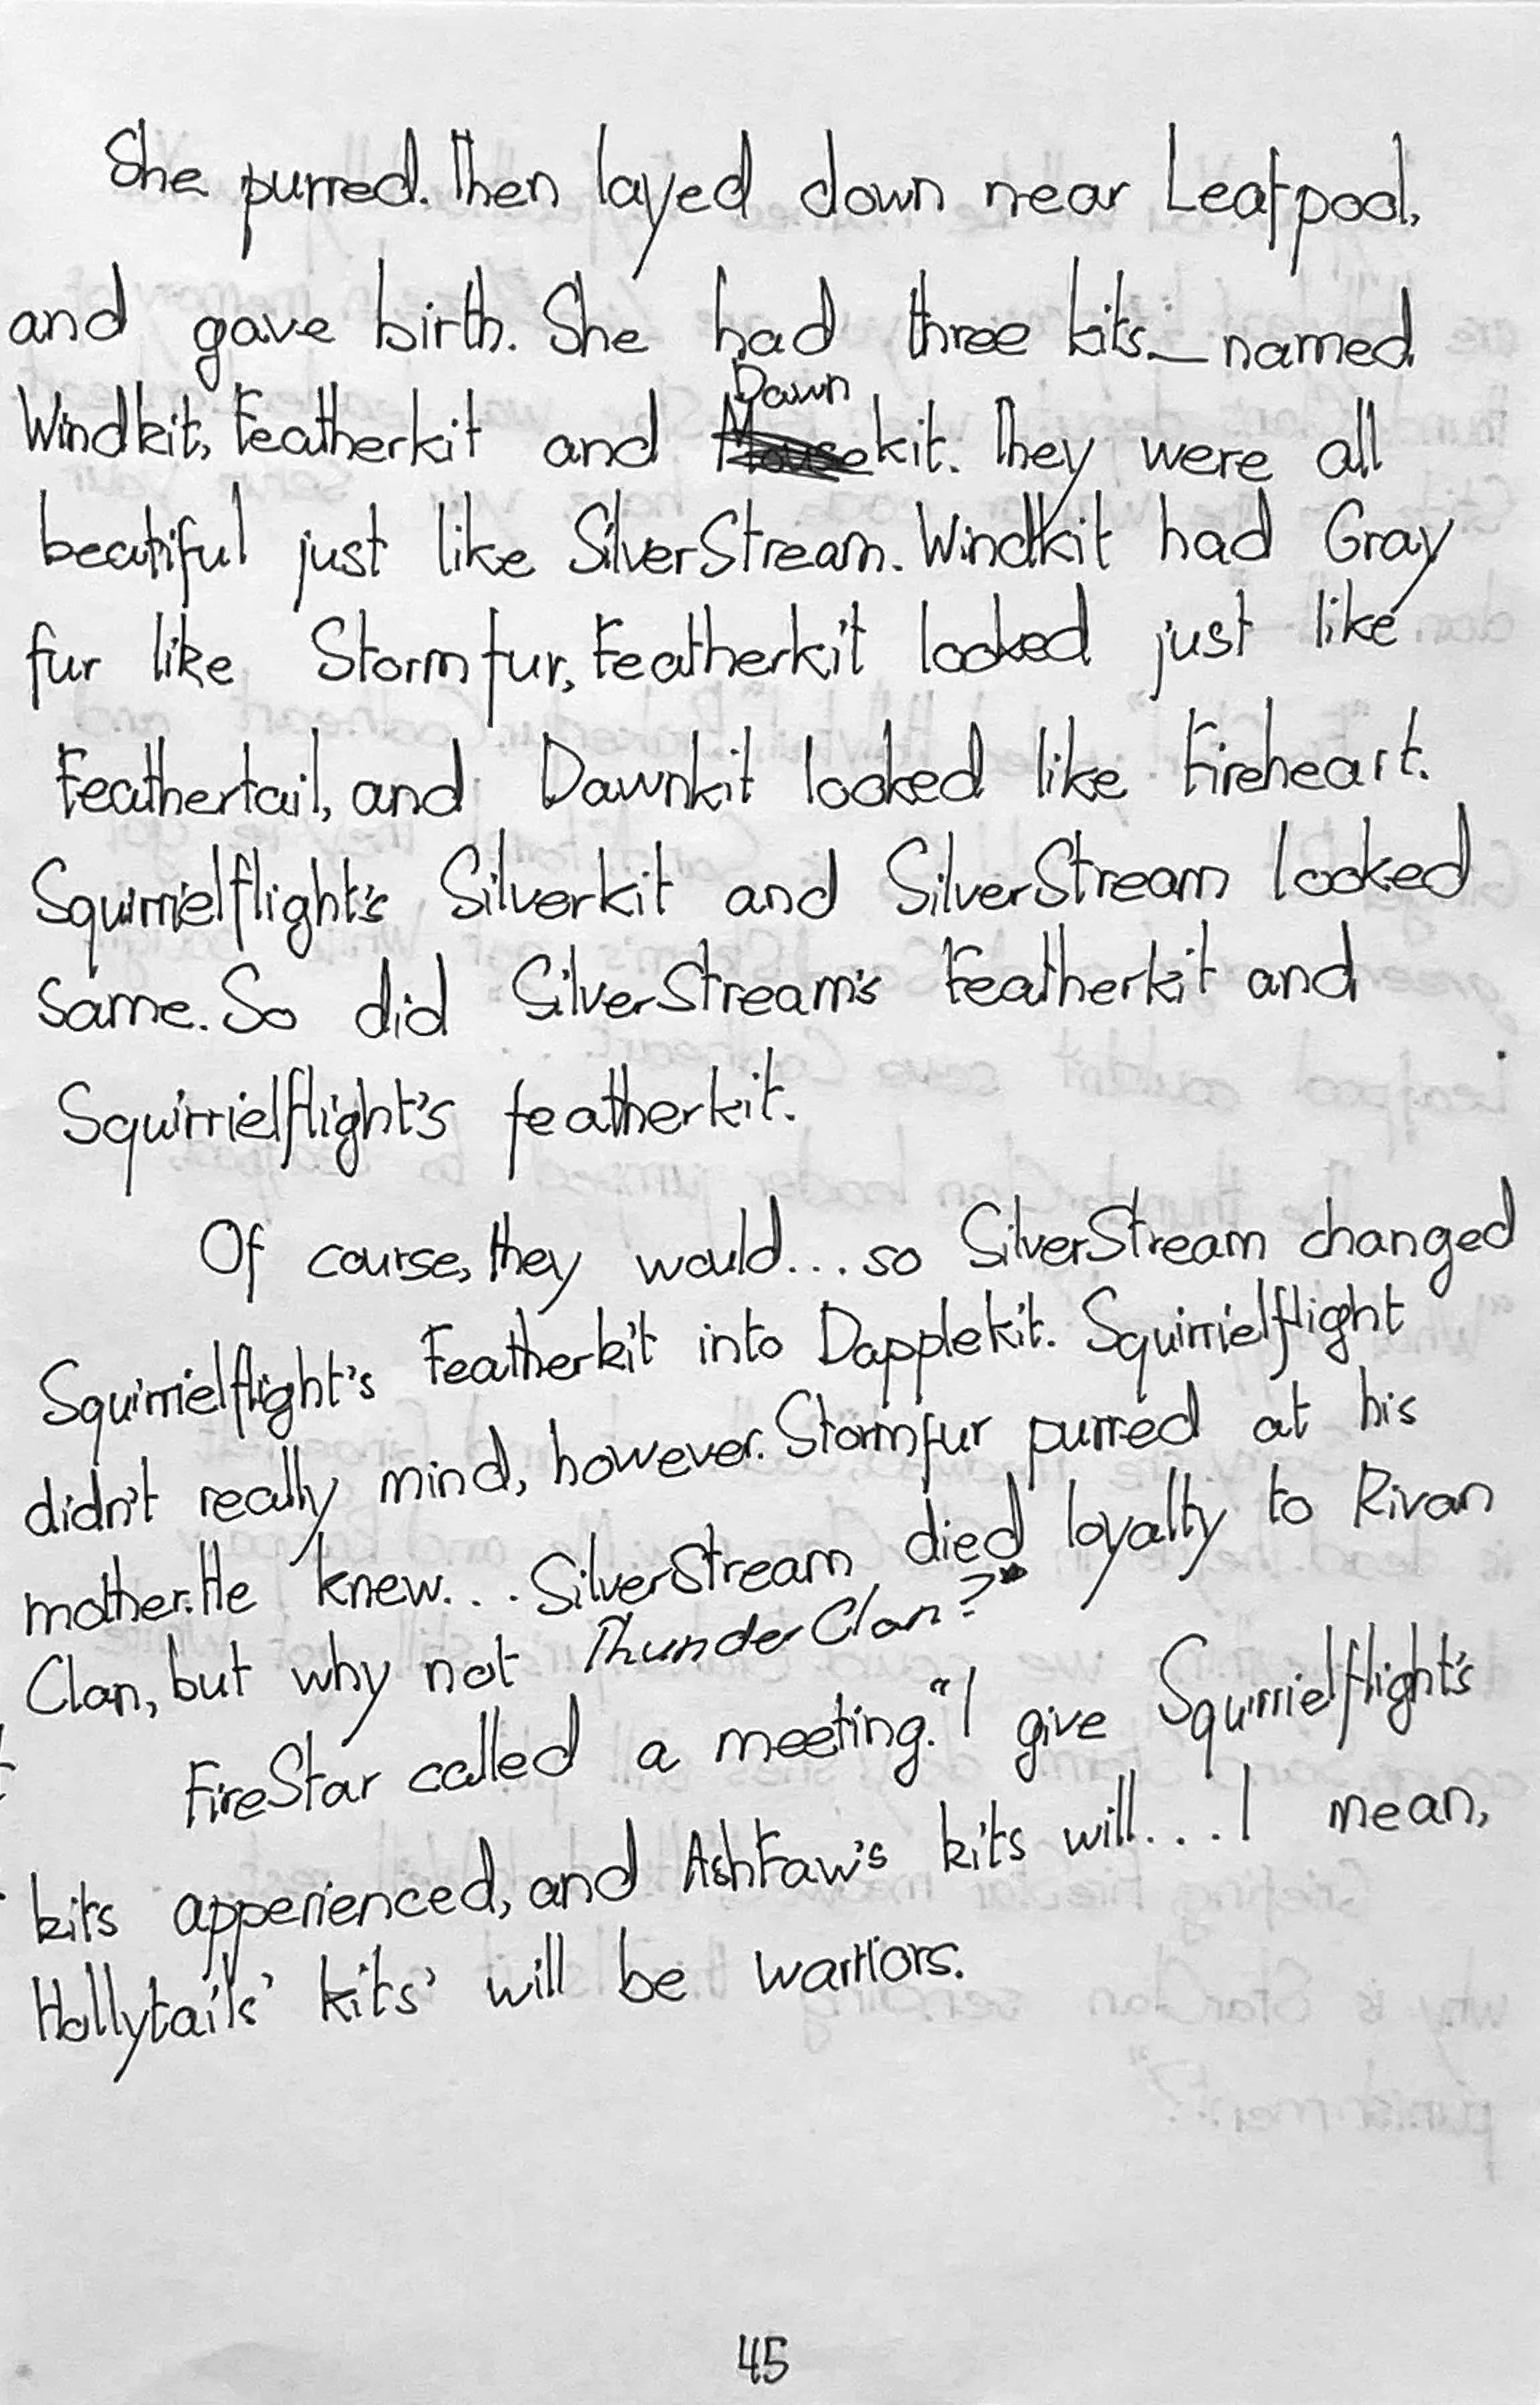 She purred. Then layed down near Leafpool,
and gave birth. She had three kits_named
Dawn
Windkit, Featherkit and Mousekit. They were all
beatiful just like SilverStream. Windkit had Gray
fur like Stormfur, Featherkit looked just like
Feathertail, and Dawnkit looked like Fireheart.
Squirrielflight's Silverkit and SilverStream looked
same. So did SilverStream's Featherkit and
Squirrielflight's featherkit.
Of course, they would... so SilverStream changed
Squirrielflight's Featherkit into Dapplekit. Squirrielflight
didn't really mind, however. Stormfur purred at his
mother. He knew... SilverStream died loyalty to Rivan
Clan, but why not ThunderClan?"
FireStar called a meeting. "I give Squirrielflight's
kits apperienced, and AshFaw's kits will... I mean,
Hollytails' kits' will be warriors.
45